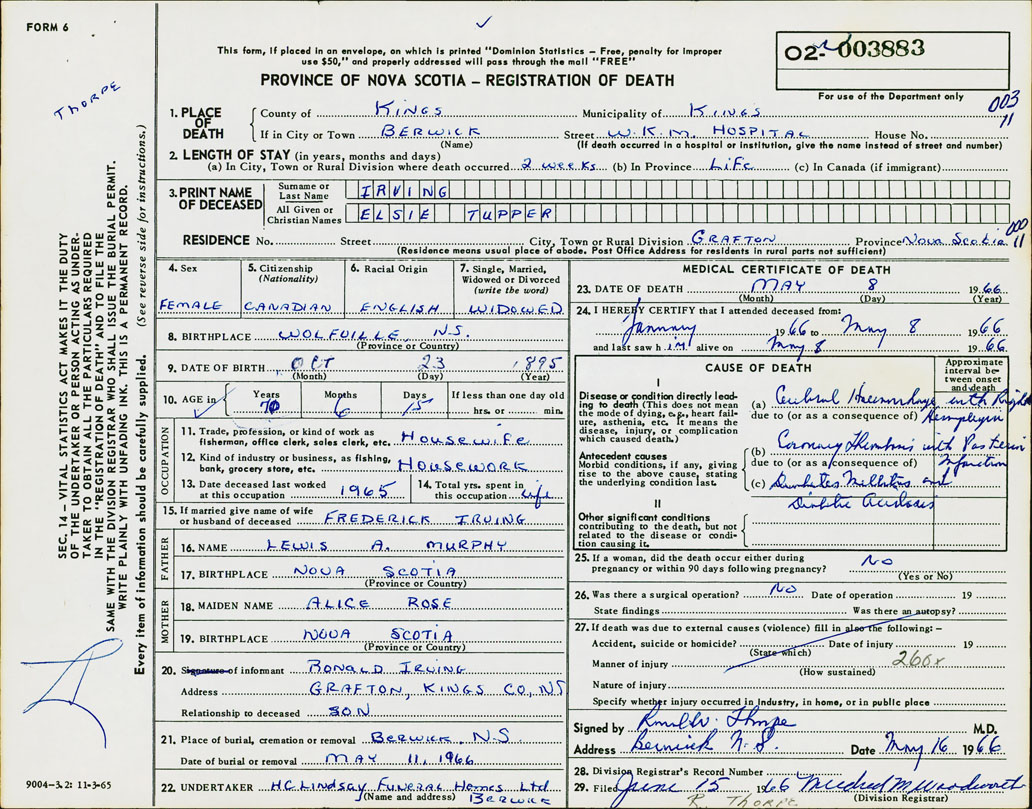 FORM 6
This form, if placed in an envelope, on which is printed "Dominion Statistics – Free, penalty for improper
use $50," and properly addressed will pass through the mail "FREE"
PROVINCE OF NOVA SCOTIA – REGISTRATION OF DEATH
02- 003883
For use of the Department only
THORPE
003
11
1. PLACE OF DEATH County of KINGS Municipality of KINGS
If in City or Town BERWICK Street W.K.M. HOSPITAL House No.
(Name) (If death occurred in a hospital or institution, give the name instead of street and number)
2. LENGTH OF STAY (in years, months and days)
(a) In City, Town or Rural Division where death occurred 2 weeks (b) In Province LIFE (c) In Canada (if immigrant)
3. PRINT NAME OF DECEASED Surname or Last Name IRVING
All Given or Christian Names ELSIE TUPPER
000
11
RESIDENCE No. Street City, Town or Rural Division GRAFTON Province NOVA SCOTIA
(Residence means usual place of abode. Post Office Address for residents in rural parts not sufficient)
4. Sex FEMALE
5. Citizenship (Nationality) CANADIAN
6. Racial Origin ENGLISH
7. Single, Married, Widowed or Divorced (write the word) WIDOWED
8. BIRTHPLACE WOLFVILLE, N.S.
(Province or Country)
9. DATE OF BIRTH OCT 23 1895
(Month) (Day) (Year)
10. AGE in Years 70 Months 6 Days 15 If less than one day old
hrs. or min.
OCCUPATION
11. Trade, profession, or kind of work as
fisherman, office clerk, sales clerk, etc. HOUSEWIFE
12. Kind of industry or business, as fishing,
bank, grocery store, etc. HOUSEWORK
13. Date deceased last worked
at this occupation 1965
14. Total yrs. spent in
this occupation life
15. If married give name of wife
or husband of deceased FREDERICK IRVING
FATHER
16. NAME LEWIS A. MURPHY
17. BIRTHPLACE NOVA SCOTIA
(Province or Country)
MOTHER
18. MAIDEN NAME ALICE ROSE
19. BIRTHPLACE NOVA SCOTIA
(Province or Country)
20. Signature of informant RONALD IRVING
Address GRAFTON, KINGS CO, NS
Relationship to deceased SON
21. Place of burial, cremation or removal BERWICK, N.S.
Date of burial or removal MAY 11, 1966
22. UNDERTAKER H.C. LINDSAY FUNERAL HOMES LTD
(Name and address) BERWICK
MEDICAL CERTIFICATE OF DEATH
23. DATE OF DEATH MAY 8 1966
(Month) (Day) (Year)
24. I HEREBY CERTIFY that I attended deceased from:
January 1966 to May 8 1966
and last saw him alive on May 8 1966
CAUSE OF DEATH
Approximate interval between onset and death
I
Disease or condition directly leading
to death (This does not mean
the mode of dying, e.g., heart failure,
asthenia, etc. It means the
disease, injury, or complication
which caused death.)
(a) Cerebral Haemorrhage with Right
due to (or as a consequence of) Hemiplegia
Antecedent causes
Morbid conditions, if any, giving
rise to the above cause, stating
the underlying condition last.
(b) Coronary Thrombosis with Posterior
due to (or as a consequence of) Infarction
(c) Diabetes Mellitus and
Diabetic Acidosis
II
Other significant conditions
contributing to the death, but not
related to the disease or condition
causing it.
25. If a woman, did the death occur either during
pregnancy or within 90 days following pregnancy? NO
(Yes or No)
26. Was there a surgical operation? NO Date of operation 19
State findings Was there an autopsy?
27. If death was due to external causes (violence) fill in also the following: –
Accident, suicide or homicide? Date of injury 19
(State which)
Manner of injury 260x
(How sustained)
Nature of injury
Specify whether injury occurred in industry, in home, or in public place
Signed by Thorpe M.D.
Address Berwick N.S. Date May 16 1966
28. Division Registrar's Record Number
29. Filed June 15 1966 Mildred M Woodworth
(Division Registrar)
R. Thorpe
SEC. 14 – VITAL STATISTICS ACT MAKES IT THE DUTY
OF THE UNDERTAKER OR PERSON ACTING AS UNDERTAKER
TO OBTAIN ALL THE PARTICULARS REQUIRED
IN THE "REGISTRATION OF DEATH" AND TO FILE THE
SAME WITH THE DIVISION REGISTRAR WHO SHALL ISSUE THE BURIAL PERMIT.
WRITE PLAINLY WITH UNFADING INK. THIS IS A PERMANENT RECORD.
Every item of information should be carefully supplied. (See reverse side for instructions.)
9004-3.2: 11-3-65